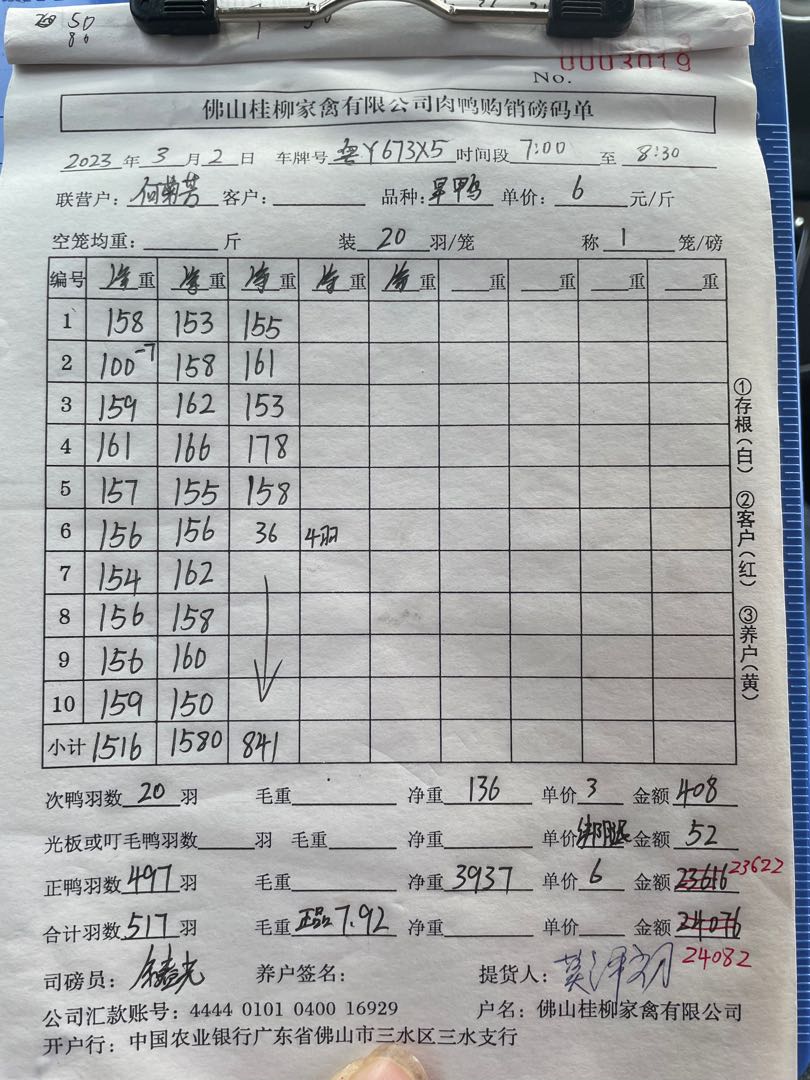 50
80
No. 0003019
佛山桂柳家禽有限公司肉鸭购销磅码单
2023年3月2日 车牌号 粤Y673X5 时间段 7:00 至 8:30
联营户: 何菊芳 客户: 品种: 旱鸭 单价: 6 元/斤
空笼均重: 斤 装 20 羽/笼 称 1 笼/磅
编号 净重 净重 净重 净重 净重 重 重 重 重
1 158 153 155
2 100-7 158 161
3 159 162 153
4 161 166 178
5 157 155 158
6 156 156 36 4羽
7 154 162
8 156 158
9 156 160
10 159 150
小计 1516 1580 841
次鸭羽数 20 羽 毛重 净重 136 单价 3 金额 408
光板或叮毛鸭羽数 羽 毛重 净重 单价 绑腿 金额 52
正鸭羽数 497 羽 毛重 净重 3937 单价 6 金额 23616 23622
合计羽数 517 羽 毛重 正品7.92 净重 单价 金额 24076
24082
司磅员: 养户签名: 提货人:
公司汇款账号: 4444 0101 0400 16929 户名: 佛山桂柳家禽有限公司
开户行: 中国农业银行广东省佛山市三水区三水支行
①存根(白) ②客户(红) ③养户(黄)